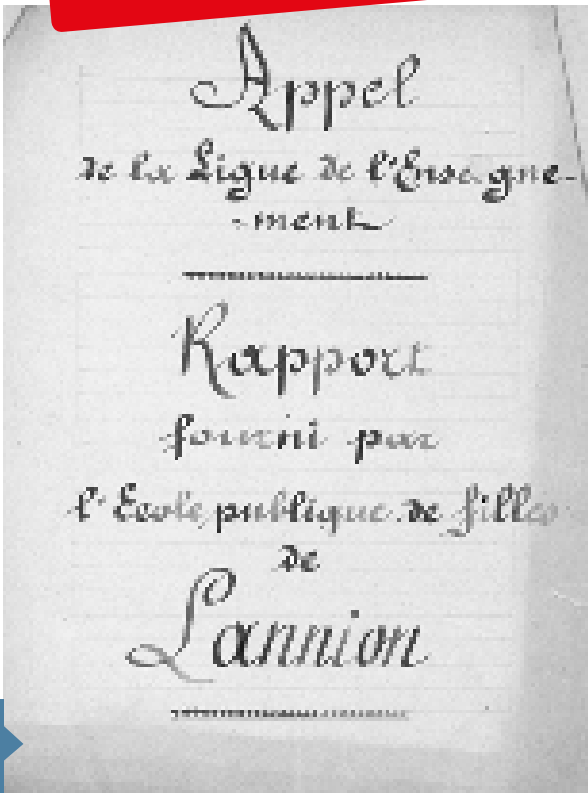 Appel
de la Ligue de l'Enseigne-
-ment
Rapport
fourni par
l'Ecole publique de filles
de
Lannion